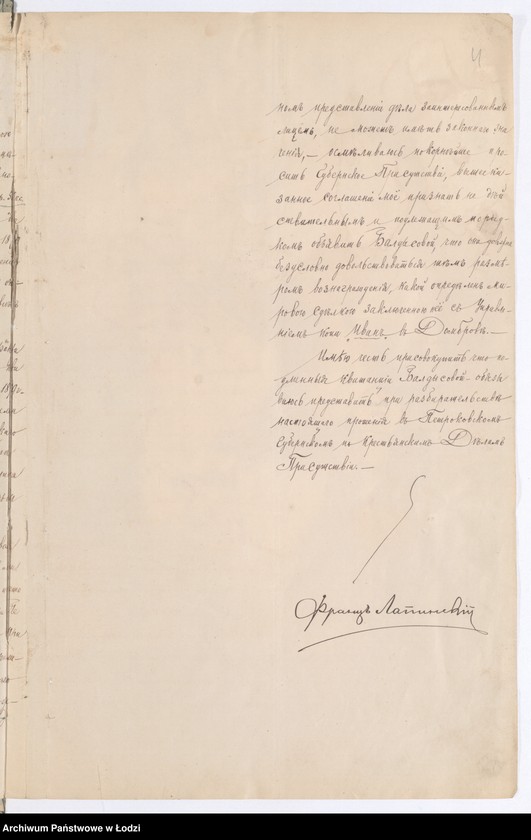 4
номъ представленіи дѣла заинтересованнымъ
лицемъ, не можетъ имѣть законнаго зна
ченія, — осмѣливаюсь покорнѣйше про
сить Губернское Присутствіе, вышеска
занное соглашеніе моё признать не дѣй
ствительнымъ и подлежащимъ поряд
комъ объявить Балдысовой, что она должна
безусловно довольствоваться тѣмъ размѣ
ромъ вознагражденія, какой опредѣленъ ми
ровою сдѣлкою заключенною ею съ Управле
ніемъ копи „Иванъ" въ Домбровѣ. —
Имѣю честь присовокупить что по
длинныя квитанціи Балдысовой обязы
ваюсь представить при разбирательствѣ
настоящаго прошенія въ Петроковскомъ
Губернскомъ по Крестьянскимъ Дѣламъ
Присутствіи. —
Францъ Лапинскій
Archiwum Państwowe w Łodzi